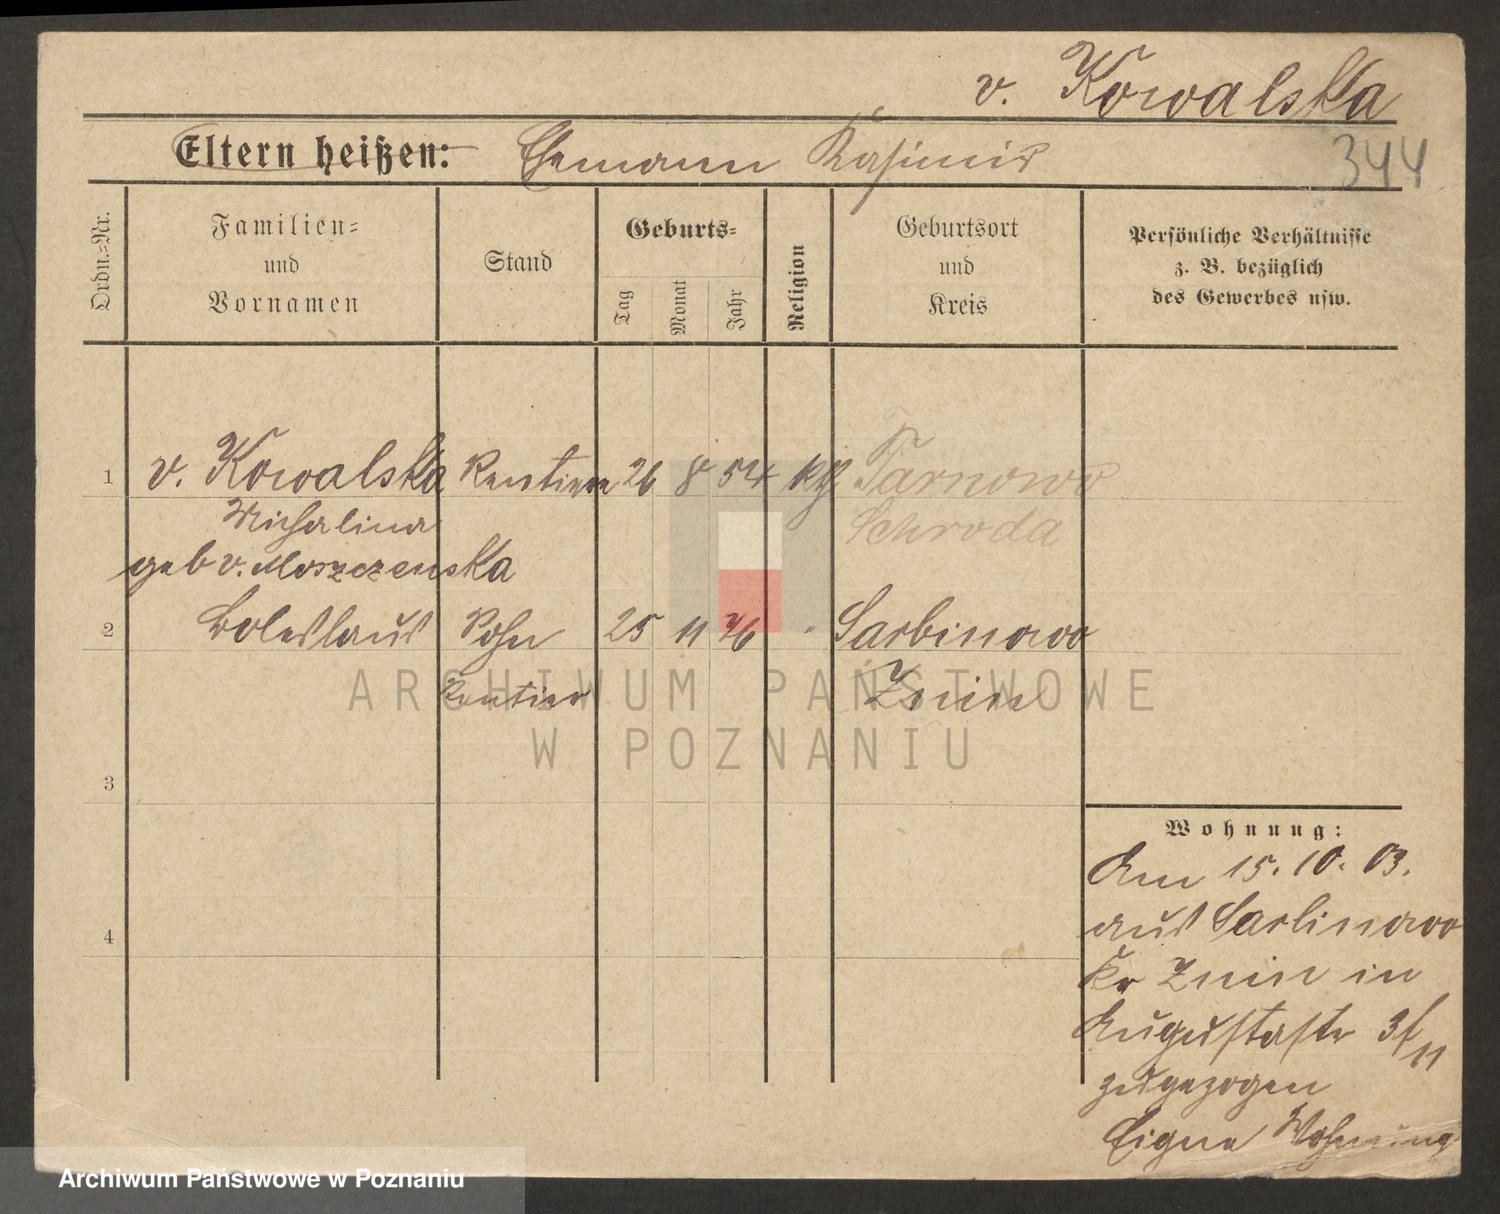 v. Kowalska
Eltern heißen: Ehemann Kasimir
344
Ordn.=Nr.
Familien=
und
Vornamen
Stand
Geburts=
Tag
Monat
Jahr
Religion
Geburtsort
und
Kreis
Persönliche Verhältnisse
z. B. bezüglich
des Gewerbes usw.
1 v. Kowalska Rentiere 26 8 54 kth Tarnowo
Michalina Schroda
geb v. Moszczenska
2 Boleslaus Sohn 25 11 76 " Sarbinowo
Rentier Znin
3
4
Wohnung:
Am 15. 10. 03.
aus Sarbinowo
Kr Znin in
Augustastr 3/II
zugezogen
Eigne Wohnung
ARCHIWUM PAŃSTWOWE
W POZNANIU
Archiwum Państwowe w Poznaniu